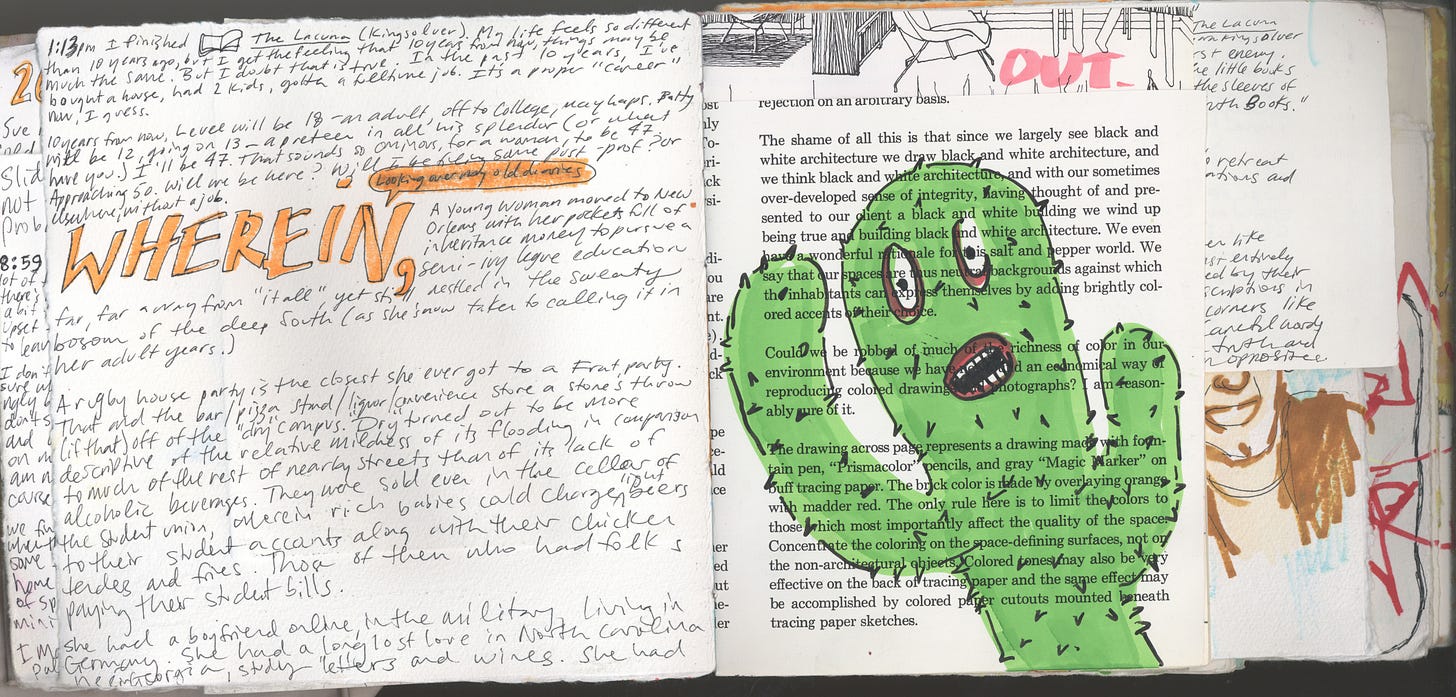 1:13pm I finished The Lacuna (Kingsolver). My life feels so different
than 10 years ago, but I get the feeling that 10 years from now, things may be
much the same. But I doubt that is true. In the past 10 years, I've
bought a house, had 2 kids, gotta a fulltime job. It's a proper "career"
now, I guess.
10 years from now, Levee will be 18 - an adult, off to College, may haps.
will be 12, going on 13 - a preteen in all his splendor (or what
have you.) I'll be 47. That sounds so ominous, for a woman, to be 47.
Approaching 50. Will we be here? Will I be filing some post-prof? or
elsewhere, without a job.
Looking over my old diaries
WHEREIN,
A young woman moved to New
Orleans with her pockets full of
inheritance money to pursue a
semi-ivy league education
far, far away from "it all" yet still nestled in the sweaty
bosom of the deep South (as she's now taken to calling it in
her adult years.)
A rugby house party is the closest she ever got to a Frat party.
That and the bar/pizza stand/liquor/convenience store a stone's throw
(if that) off of the "dry" campus. "Dry" turned out to be more
descriptive of the relative mildness of its flooding in comparison
to much of the rest of nearby streets than of its lack of
alcoholic beverages. They were sold even in the cellar of
the student union, wherein rich babies could charge "put beers
to their student accounts along with their chicken
tendes and fries. Those of them who had folks
paying their student bills.
She had a boyfriend online, in the military, living in
Germany. She had a long lost love in North Carolina
Georgia, study letters and wines. She had
OUT.
rejection on an arbitrary basis.
The shame of all this is that since we largely see black and
white architecture we draw black and white architecture, and
we think black and white architecture, and with our sometimes
over-developed sense of integrity, having thought of and pre-
sented to our client a black and white building we wind up
being true and building black and white architecture. We even
have a wonderful rationale for this salt and pepper world. We
say that our spaces are thus neutral backgrounds against which
the inhabitants can express themselves by adding brightly col-
ored accents of their choice.
Could we be robbed of much of the richness of color in our
environment because we have not found an economical way of
reproducing colored drawings photographs? I am reason-
ably sure of it.
The drawing across page represents a drawing made with foun-
tain pen, "Prismacolor" pencils, and gray "Magic Marker" on
buff tracing paper. The brick color is made by overlaying orange
with madder red. The only rule here is to limit the colors to
those which most importantly affect the quality of the space.
Concentrate the coloring on the space-defining surfaces, not on
the non-architectural objects. Colored tones may also be very
effective on the back of tracing paper and the same effect may
be accomplished by colored paper cutouts mounted beneath
tracing paper sketches.
The Lacuna
Kingsolver
enemy.
little books
the sleeves of
Boots."
retreat
and
like
entirely
by their
in
corners like
careful wordy
truth and
opposites
8:59